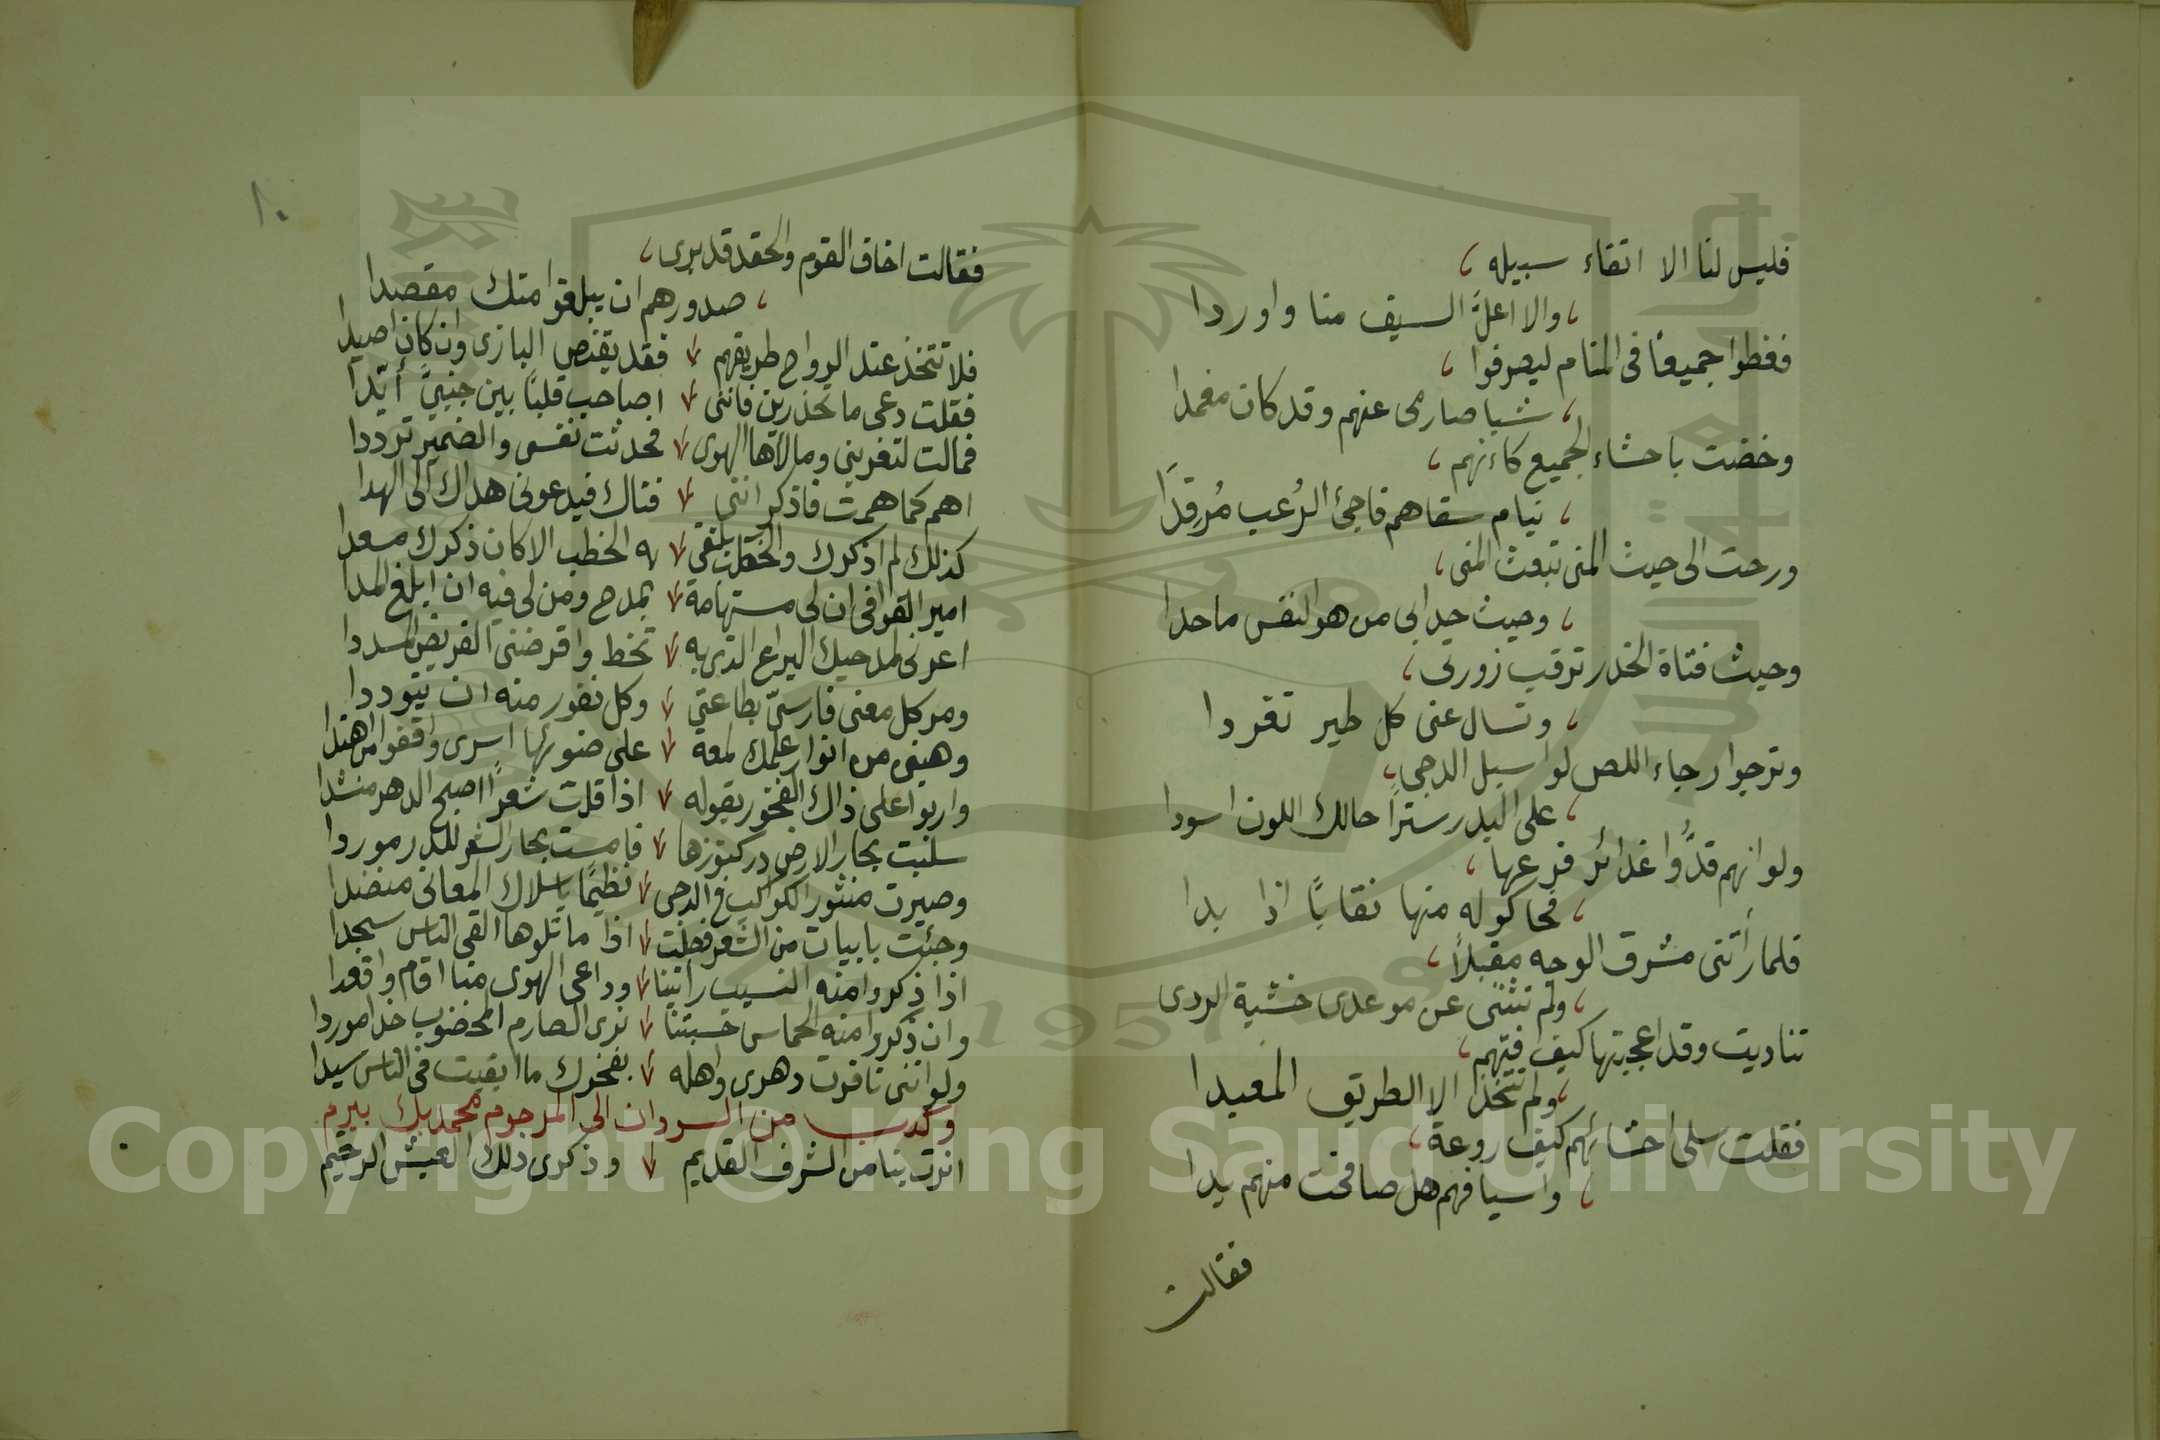 فليس لنا الا اتقاء سبيله
والا اعلَّ السيف منا واوردا
فغطوا جميعًا في المنام ليصرفوا
شبا صارمي عنهم وقد كان مغمدا
وخضت باحشاء الجميع كاءنهم
نيام سقاهم فاجئ الرُعب مُرقِدَا
ورحت الى حيث المنى تبعث المنى
وحيث حدابي من هو النفس ماحدا
وحيث فتاة الخدر ترقب زورتي
وتسال عني كل طير تغردا
وترجوا رجاء اللص لو اسبل الدجى
على البدر سترًا حالك اللون اسودا
ولو انهم قدُّوا غدائر فرعها
فحاكوله منها نقابًا اذا بدا
فلما رأتني مشرق الوجه مقبلاً
ولم تثنني عن موعدي خشية الردى
تناديت وقد اعجبتها كيف فتهم
ولم تتخذ الا الطريق المعبدا
فقلت سلى احشائهم كيف روعة
واسيافهم هل صافحت منهم يدا
فقالت
١٠
فقالت اخاف القوم والحقد قد برى
صدورهم ان يبلغوا منك مقصدا
فلا تتخذ عند الرواح طريقهم فقد يقنص البازى وان كان اصيدا
فقلت دعى ما تحذرين فانني اصاحب قلبًا بين جنبيَّ أيّدا
فمالت لتغريني ومالأها الهوى فحدثت نفسى والضمير ترددا
اهم كما همت فاذكر انني فتاك فيدعوني هداك الى الهدا
كذلك لم اذكرك والخطب يلتقي به الخطب الا كان ذكرك مسعدا
امير القوافي ان لى مستهامة بمدح ومن لى فيه ان ابلغ المدا
اعرنى لمدحيك اليراع الذى به تخط واقرضنى القريض المسددا
ومر كل معنى فارسيّ بطاعتي وكل نفور منه ان يتوددا
وهبني من انوار علمك لمعه على ضوئها اسرى واقفوا من اهتدا
واربوا على ذاك الفخور بقوله اذا قلت شعرًا اصبح الدهر منشدا
سلبت بحار الارض در كنوزها فامست بحار الشعر للدر موردا
وصيرت منثور الكواكب في الدجى نظيمًا باسلاك المعاني منضدا
وجئت بابيات من الشعر فصلت اذا ما تلوها القى الناس سجدا
اذا ذكروا منه النسيب رأيتنا وداعى الهوى منا اقام واقعدا
وان ذكروا منه الحماس حسبتنا نرى الصارم المخضوب خدا موردا
ولو انني نافرت دهرى واهله بفخرك ما ابقيت في الناس سيدا
وكتب من السودان الى المرحوم محمد بك بيرم
انزت بنا من الشرف القديم وذكرى ذلك العيش الرخيم
Copyright © King Saud University
1957